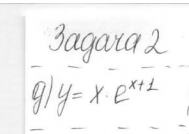 Задача 2
д) y = x · e^{x+1}